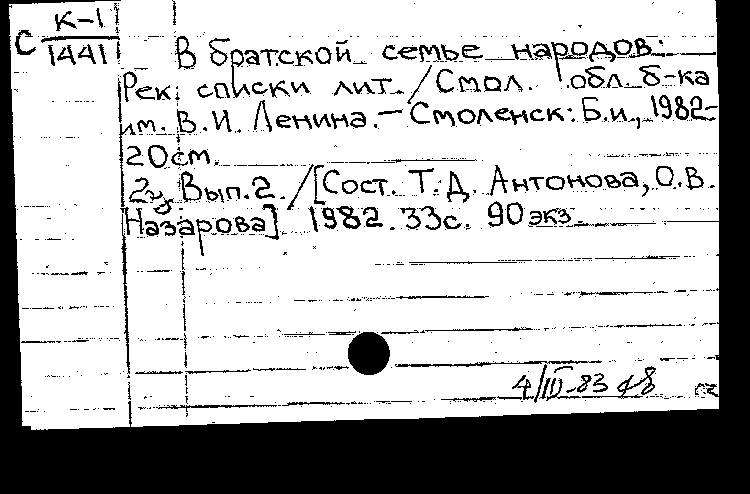 С К-1
1441
В братской семье народов:
Рек. списки лит. / Смол. обл. б-ка
им. В.И. Ленина. — Смоленск: Б.и., 1982-
20см.
Вып.2. / [Сост. Т.Д. Антонова, О.В.
Назарова] 1982. 33с. 90 экз.
4/III-83